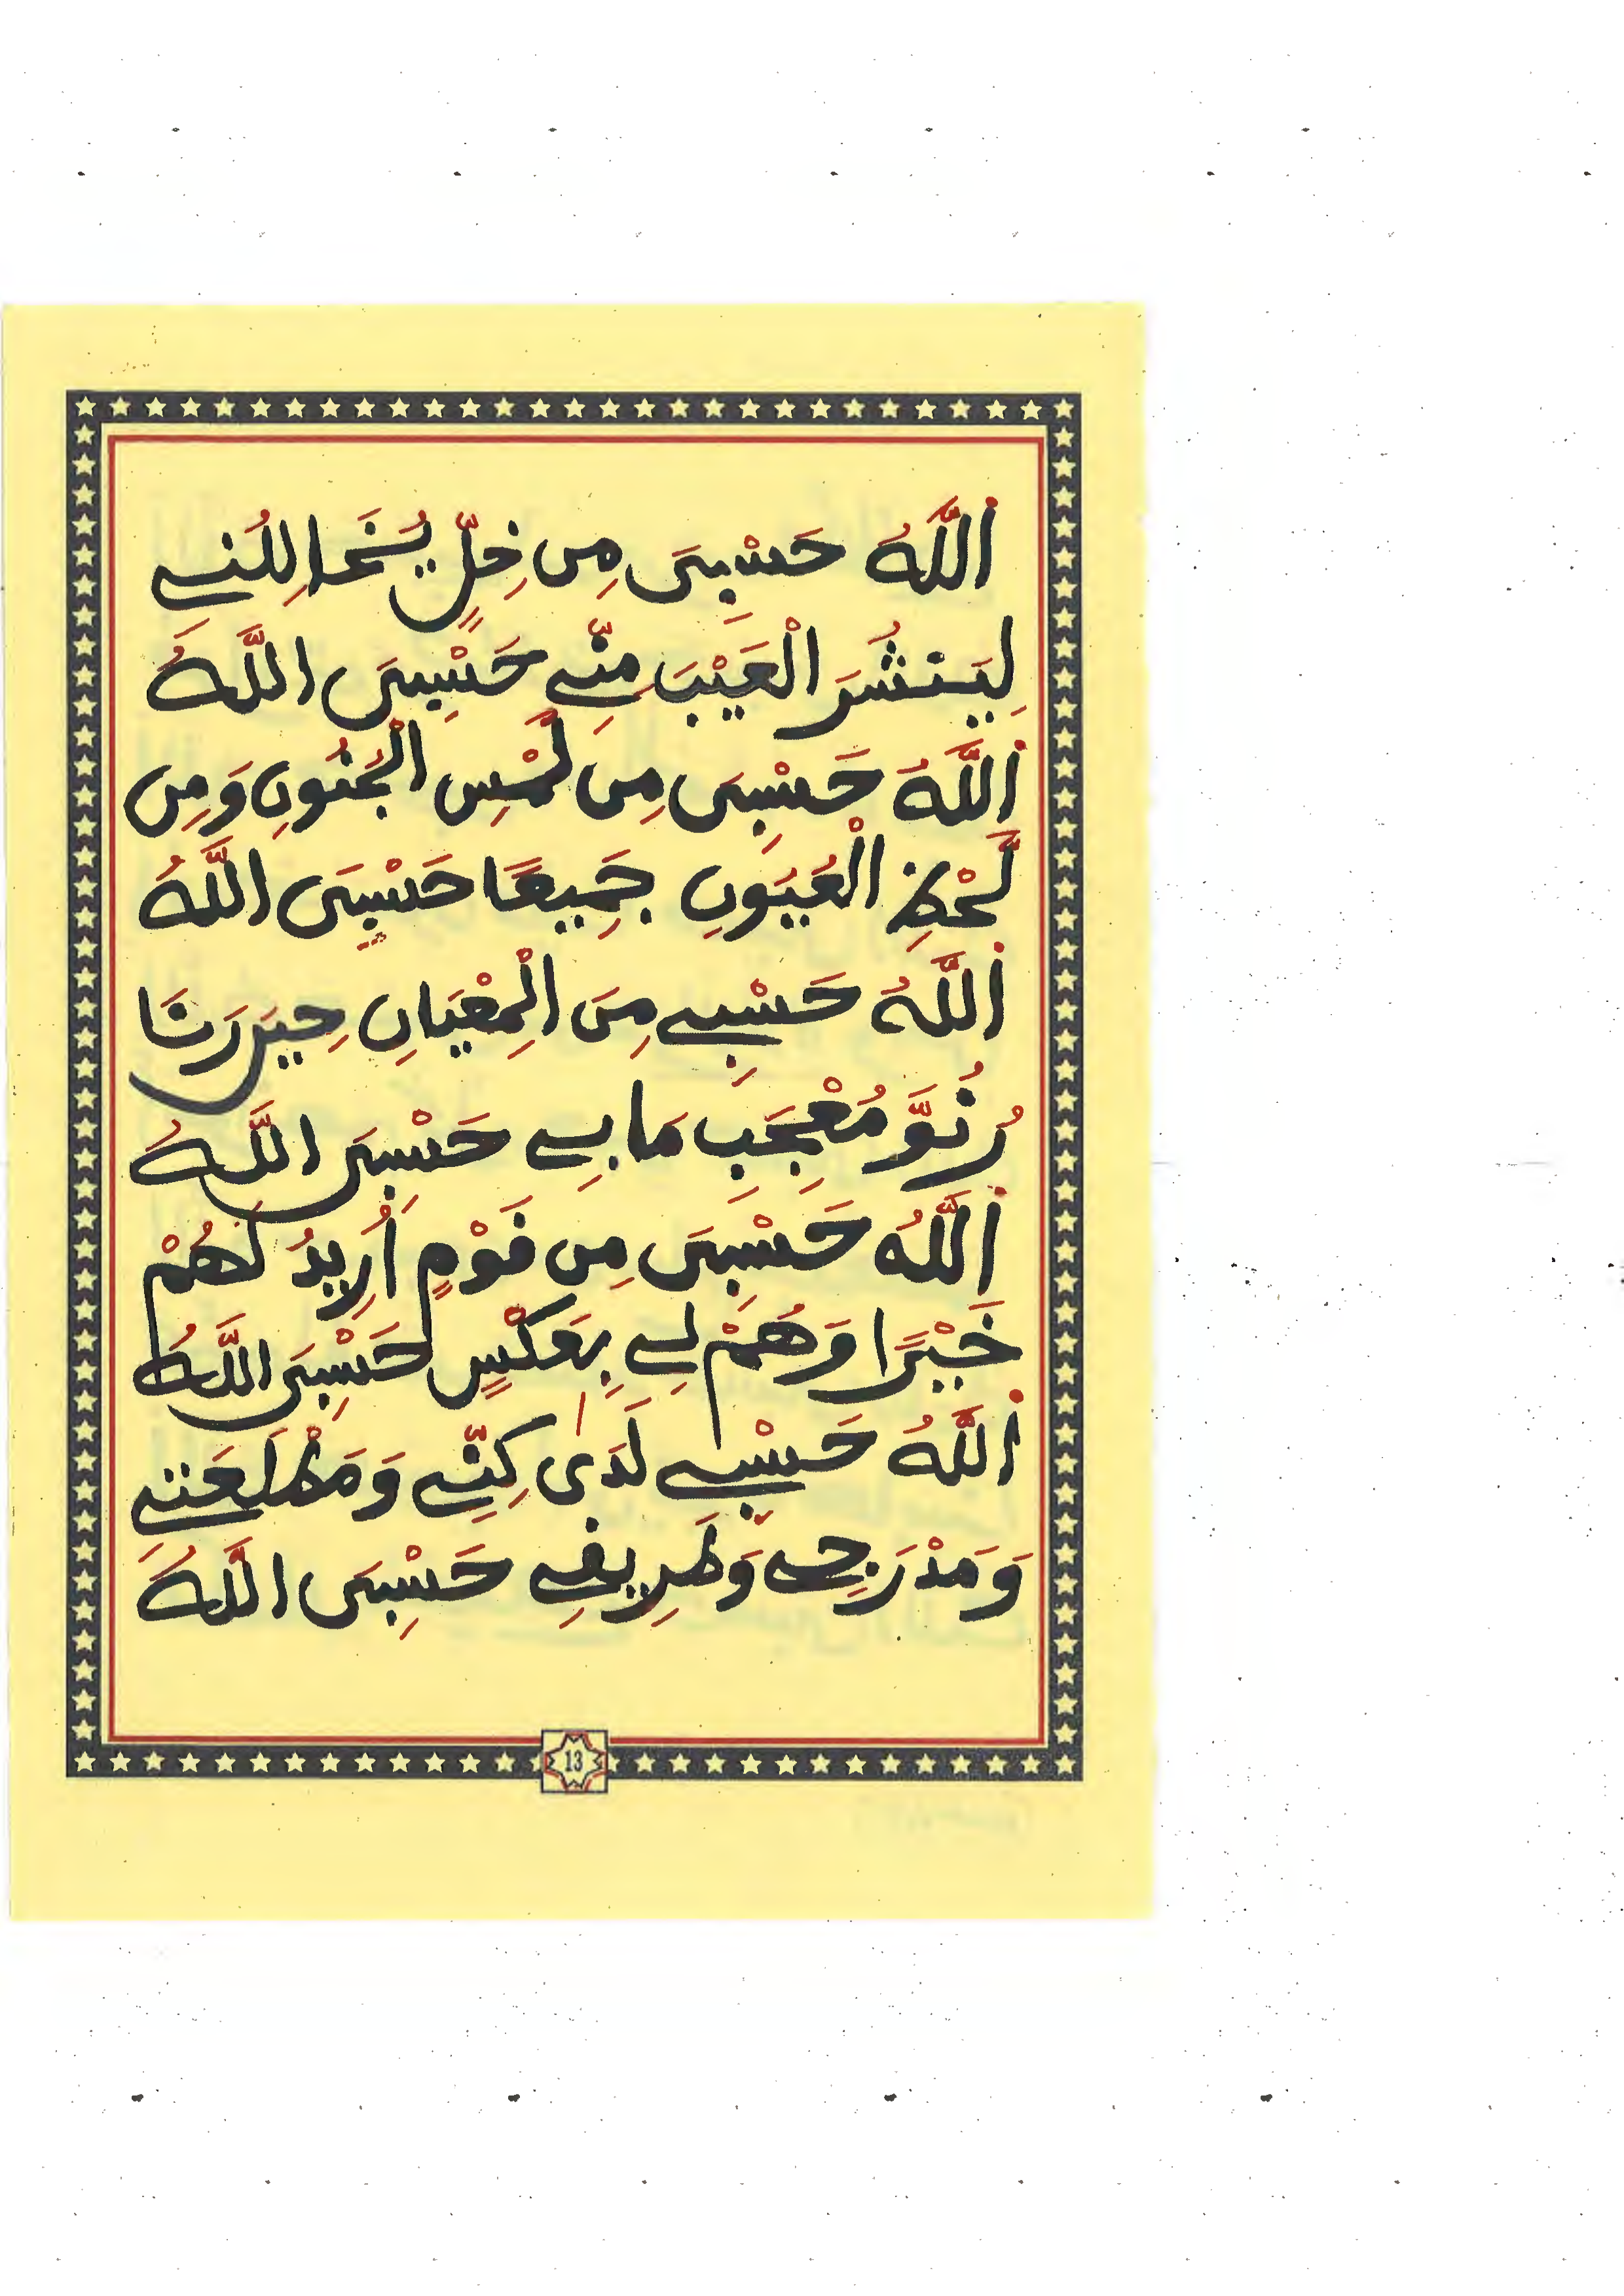 اَللَّهُ حَسْبِىَ مِن خِلٍّ يُخَالِلُنِى
لِيَنشُرَ الْعَيْبَ مِنِّى حَسْبِىَ اللَّهُ
اَللَّهُ حَسْبِىَ مِن لَمْسِ الْجُنُونِ وَمِن
لَحْظِ الْعُيُونِ جَمِيعًا حَسْبِىَ اللَّهُ
اَللَّهُ حَسْبِى مِنَ الْمِعْيَانِ حِينَ رَنَا
رُنُوَّ مُعْجَبِ مَا بِى حَسْبِىَ اللَّهُ
اَللَّهُ حَسْبِىَ مِن قَوْمٍ أُرِيدُ لَهُمْ
خَيْرًا وَهُمْ لِى بِعَكْسٍ حَسْبِىَ اللَّهُ
اَللَّهُ حَسْبِى لَدَى كِنِّى وَمَطْلَعَتِى
وَمَدْرَجِى وَطَرِيقِى حَسْبِىَ اللَّهُ
13